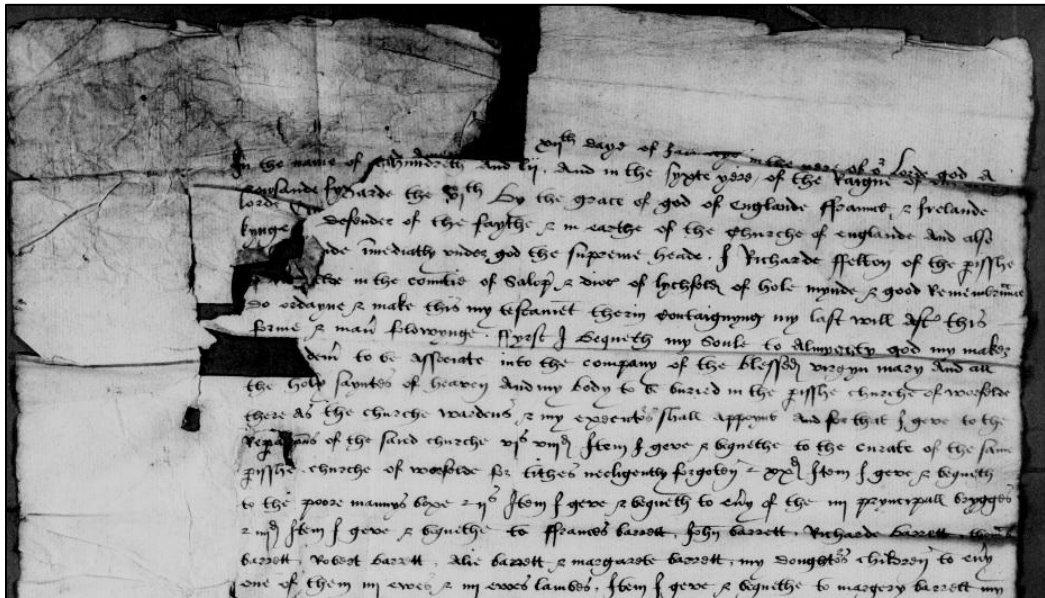 xvth daye of in the yere of or Lorde god A
In the name of hundreth and lij. And in the syxte yere of the Raigne of
Lorde the vjth By the grace of god of Englande ffraunce & Irelande
kynge defender of the faythe & in earthe of the Churche of englande and also
imediatly under god the supreme heade. I Richarde ffelton of the pisshe
in the countie of Salop & dioc of lychfeld of hole mynde & good Remembraunce
do ordayne & make this my testament therin contaignyng my last will aftr this
forme & manr folowynge. ffyrst I bequeth my Soule to Almyghty god my maker
to be associate into the company of the blessed virgyn mary and all
the holy sayntes of heaven And my body to be buried in the pisshe churche of worfelde
there as the churche wardens & my executors shall appoynt and for that I geve to the
Repaōns of the said churche vjs viijd Item I geve & bequethe to the curate of the same
pisshe churche of worfelde for tithes necligently forgoten xxd Item I geve & bequeth
to the poore mannys boxe ijs Item I geve & bequeth to evy of the iiij pryncipall brygges
iiijd Item I geve & bequethe to ffraunces barrett, John barrett, Richarde barrett, thomas
barrett, Robert barrett, Alie barrett & margarete barrett, my doughters children to evy
one of them iiij ewes & iiij ewes lambes. Item I geve & bequethe to margery barrett my